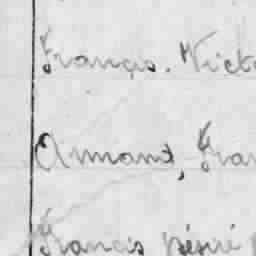 François. Vict
Armand, Fran
Francis Désiré